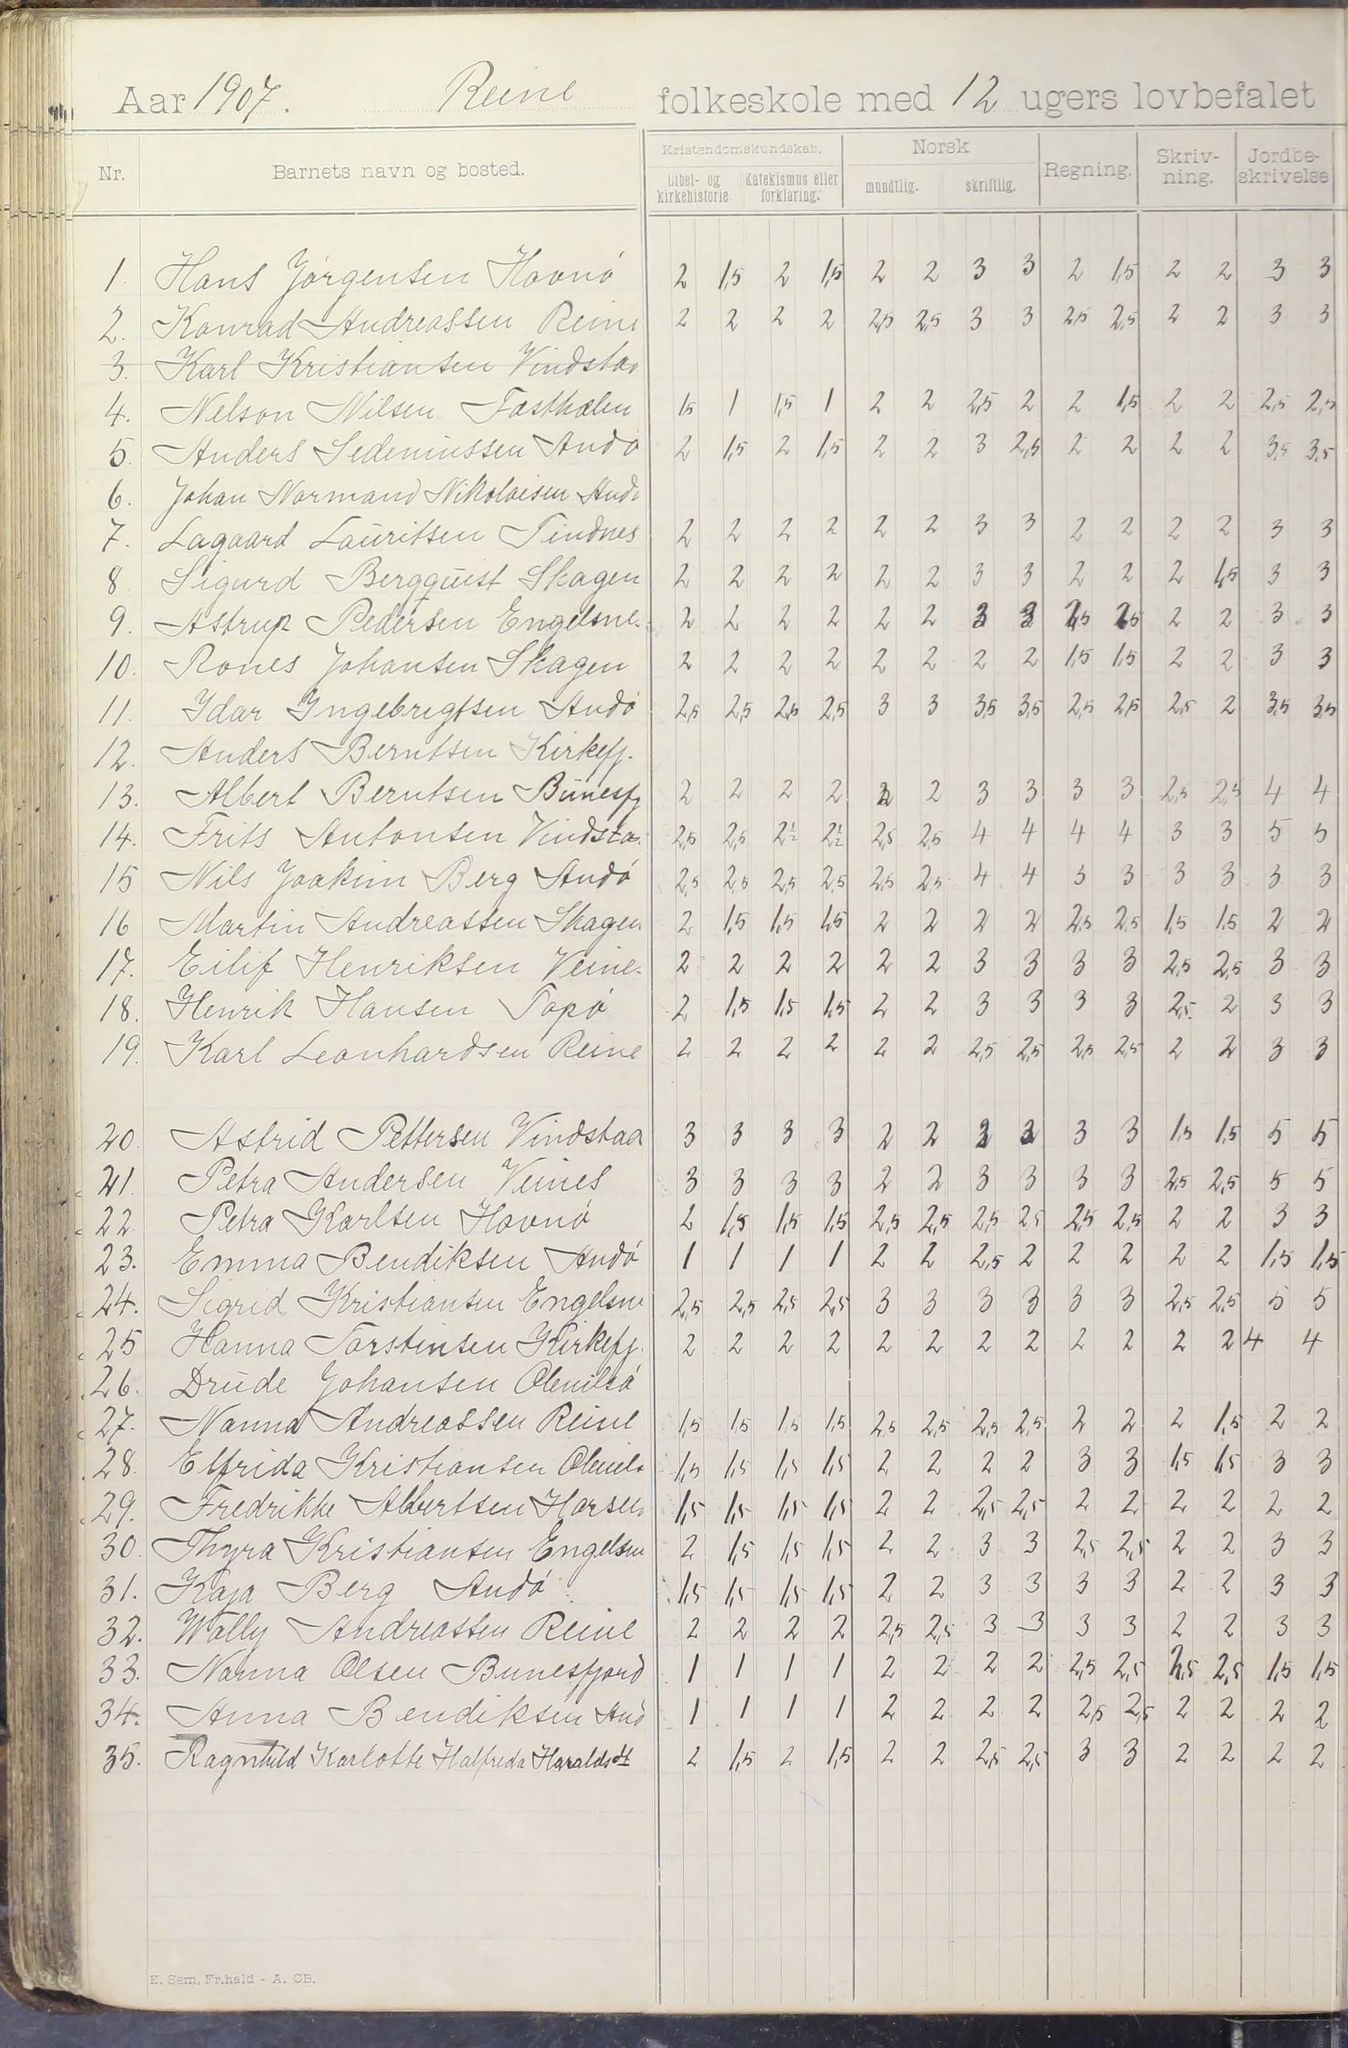 Aar 1907. Reine folkeskole med 12 ugers lovbefalet
Nr. Barnets navn og bosted. Kristendomskundskab. Norsk Regning. Skriv-ning. Jordbe-skrivelse
Bibel- og kirkehistorie. Katekismus eller forklaring. mundtlig. skriftlig.
1. Hans Jørgensen Havnø 2 1,5 2 1,5 2 2 3 3 2 1,5 2 2 3 3
2. Konrad Andreassen Reine 2 2 2 2 2,5 2,5 3 3 2,5 2,5 2 2 3 3
3. Karl Kristiansen Vindstad
4. Nelson Nilsen 1,5 1 1,5 1 2 2 2,5 2 2 1,5 2 2 2,5 2,5
5. Anders Sedeniussen Andø 2 1,5 2 1,5 2 2 3 2,5 2 2 2 2 3,5 3,5
6. Johan Normand Nikolaisen Andø
7. Lagaard Lauritsen Tindnes 2 2 2 2 2 2 3 3 2 2 2 2 3 3
8. Sigurd Bergquist Skagen 2 2 2 2 2 2 3 3 2 2 2 1,5 3 3
9. Astrup Pedersen Engelsne. 2 2 2 2 2 2 3 3 2,5 2,5 2 2 3 3
10. Rones Johansen Skagen 2 2 2 2 2 2 2 2 1,5 1,5 2 2 3 3
11. Idar Ingebrigtsen Andø 2,5 2,5 2,5 2,5 3 3 3,5 3,5 2,5 2,5 2,5 2 3,5 3,5
12. Anders Berntsen Kirkefj.
13. Albert Berntsen Bunesfj 2 2 2 2 2 2 3 3 3 3 2,5 2,5 4 4
14. Frits Antonsen Vindsta. 2,5 2,5 2½ 2½ 2,5 2,5 4 4 4 4 3 3 5 5
15 Nils Joakim Berg Andø 2,5 2,5 2,5 2,5 2,5 2,5 4 4 3 3 3 3 3 3
16 Martin Andreassen Skagen 2 1,5 1,5 1,5 2 2 2 2 2,5 2,5 1,5 1,5 2 2
17. Eilif Henriksen Veine. 2 2 2 2 2 2 3 3 3 3 2,5 2,5 3 3
18. Henrik Hansen Topø 2 1,5 1,5 1,5 2 2 3 3 3 3 2,5. 2 3 3
19. Karl Leonhardsen Reine 2 2 2 2 2 2 2,5 2,5 2,5 2,5 2 2 3 3
20. Astrid Pettersen Vindstad 3 3 3 3 2 2 2 2 3 3 1,5 1,5 5 5
21. Petra Andersen Veines 3 3 3 3 2 2 3 3 3 3 2,5 2,5 5 5
22. Petra Karlsen Havnø 2 1,5 1,5 1,5 2,5 2,5 2,5 2,5 2,5 2,5 2 2 3 3
23. Emma Bendiksen Andø 1 1 1 1 2 2 2,5 2 2 2 2 2 1,5 1,5
24. Sigrid Kristiansen Engelsne 2,5 2,5 2,5 2,5 3 3 3 3 3 3 2,5 2,5 5 5
25 Hanna Torstinsen Kirkefj. 2 2 2 2 2 2 2 2 2 2 2 2 4 4
26. Drude Johansen Olenilsø
27. Nanna Andreassen Reine 1,5 1,5 1,5 1,5 2,5 2,5 2,5 2,5 2 2 2 1,5 2 2
28. Elfrida Kristiansen Olenils 1,5 1,5 1,5 1,5 2 2 2 2 3 3 1,5 1,5 3 3
29. Fredrikke Albertsen 1,5 1,5 1,5 1,5 2 2 2,5 2,5 2 2 2 2 2 2
30. Thyra Kristiansen Engelsne 2 1,5 1,5 1,5 2 2 3 3 2,5 2,5 2 2 3 3
31. Kaja Berg Andø 1,5 1,5 1,5 1,5 2 2 3 3 3 3 2 2 3 3
32. Wally Andreassen Reine 2 2 2 2 2,5 2,5 3 3 3 3 2 2 3 3
33. Nanna Olsen Bunesfjord 1 1 1 1 2 2 2 2 2,5 2,5 2,5 2,5 1,5 1,5
34. Anna Bendiksen And 1 1 1 1 2 2 2 2 2,5 2,5 2 2 2 2
35. Ragnhild Karlotte Halfreda Haraldsdt 2 1,5 2 1,5 2 2 2,5 2,5 3 3 2 2 2 2
E. Sem, Fr.hald - A. CB.